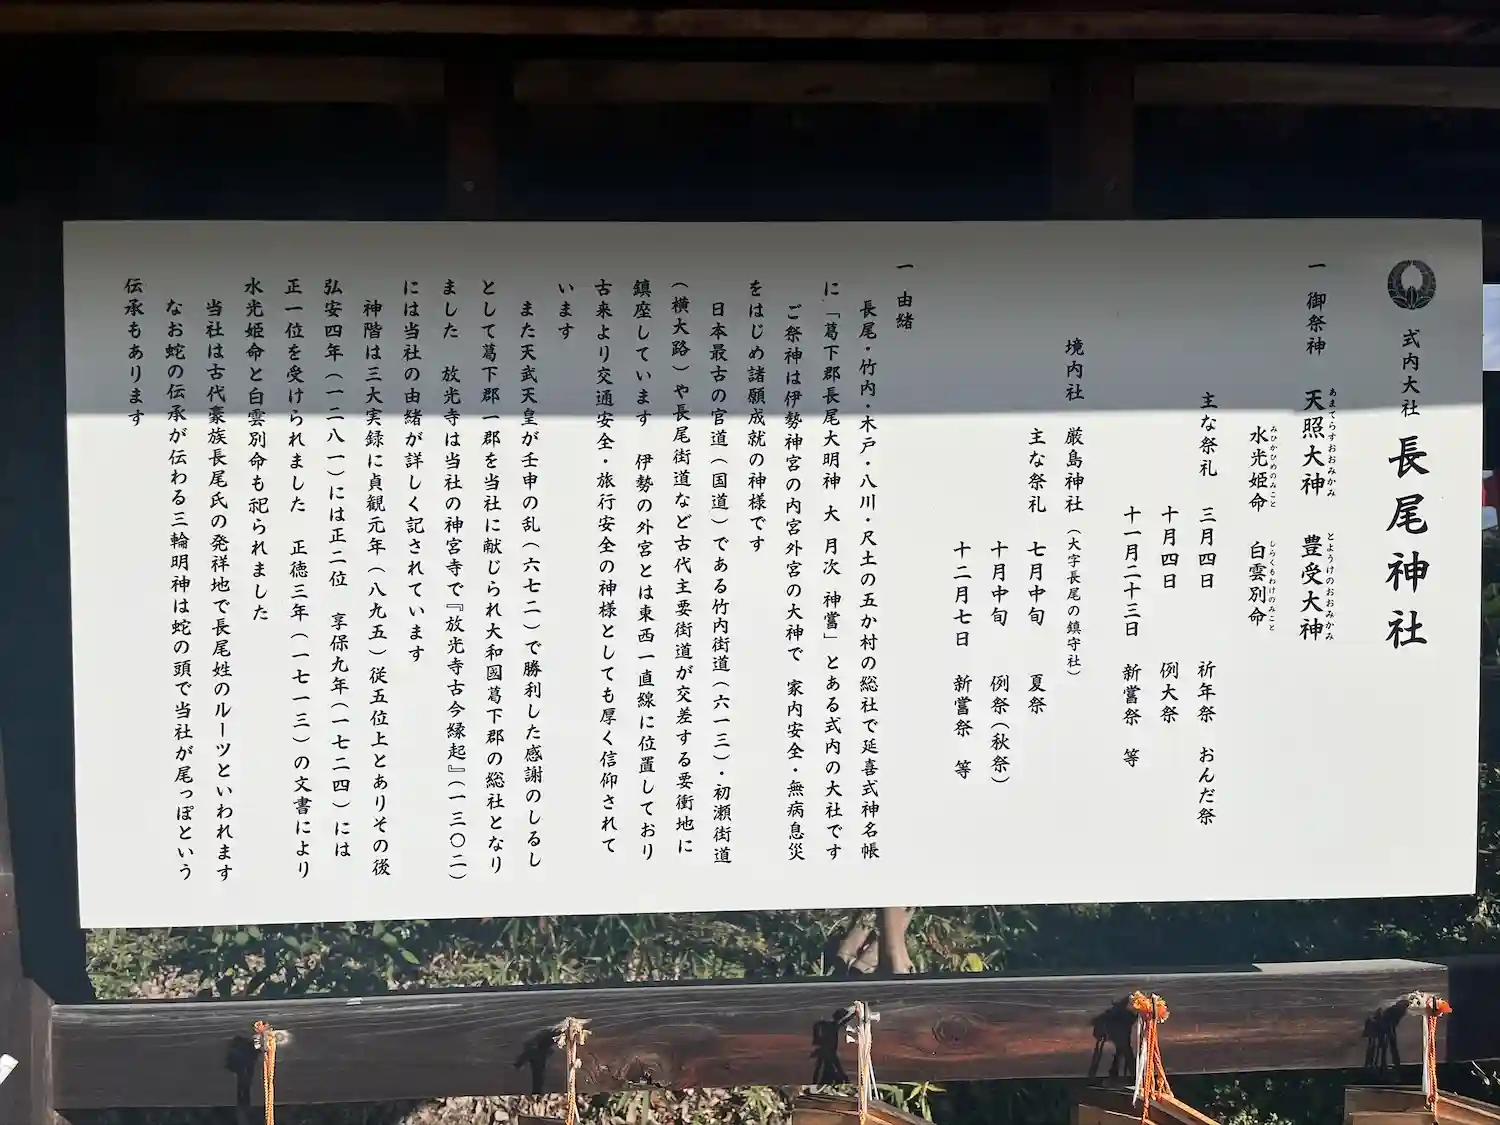 式内大社 長尾神社
一 御祭神 天照大神 豊受大神
あまてらすおおみかみ とようけのおおみかみ
水光姫命 白雲別命
みひかひめのみこと しらくもわけのみこと
主な祭礼 三月四日 祈年祭 おんだ祭
十月四日 例大祭
十一月二十三日 新嘗祭 等
境内社 厳島神社 (大字長尾の鎮守社)
主な祭礼 七月中旬 夏祭
十月中旬 例祭(秋祭)
十二月七日 新嘗祭 等
一 由緒
長尾・竹内・木戸・八川・尺土の五か村の総社で延喜式神名帳
に「葛下郡長尾大明神 大 月次 神嘗」とある式内の大社です
ご祭神は伊勢神宮の内宮外宮の大神で 家内安全・無病息災
をはじめ諸願成就の神様です
日本最古の官道(国道)である竹内街道(六一三)・初瀬街道
(横大路)や長尾街道など古代主要街道が交差する要衝地に
鎮座しています 伊勢の外宮とは東西一直線に位置しており
古来より交通安全・旅行安全の神様としても厚く信仰されて
います
また天武天皇が壬申の乱(六七二)で勝利した感謝のしるし
として葛下郡一郡を当社に献じられ大和國葛下郡の総社となり
ました 放光寺は当社の神宮寺で『放光寺古今縁起』(一三〇二)
には当社の由緒が詳しく記されています
神階は三大実録に貞観元年(八九五)従五位上とありその後
弘安四年(一二八一)には正二位 享保九年(一七二四)には
正一位を受けられました 正徳三年(一七一三)の文書により
水光姫命と白雲別命も祀られました
当社は古代豪族長尾氏の発祥地で長尾姓のルーツといわれます
なお蛇の伝承が伝わる三輪明神は蛇の頭で当社が尾っぽという
伝承もあります